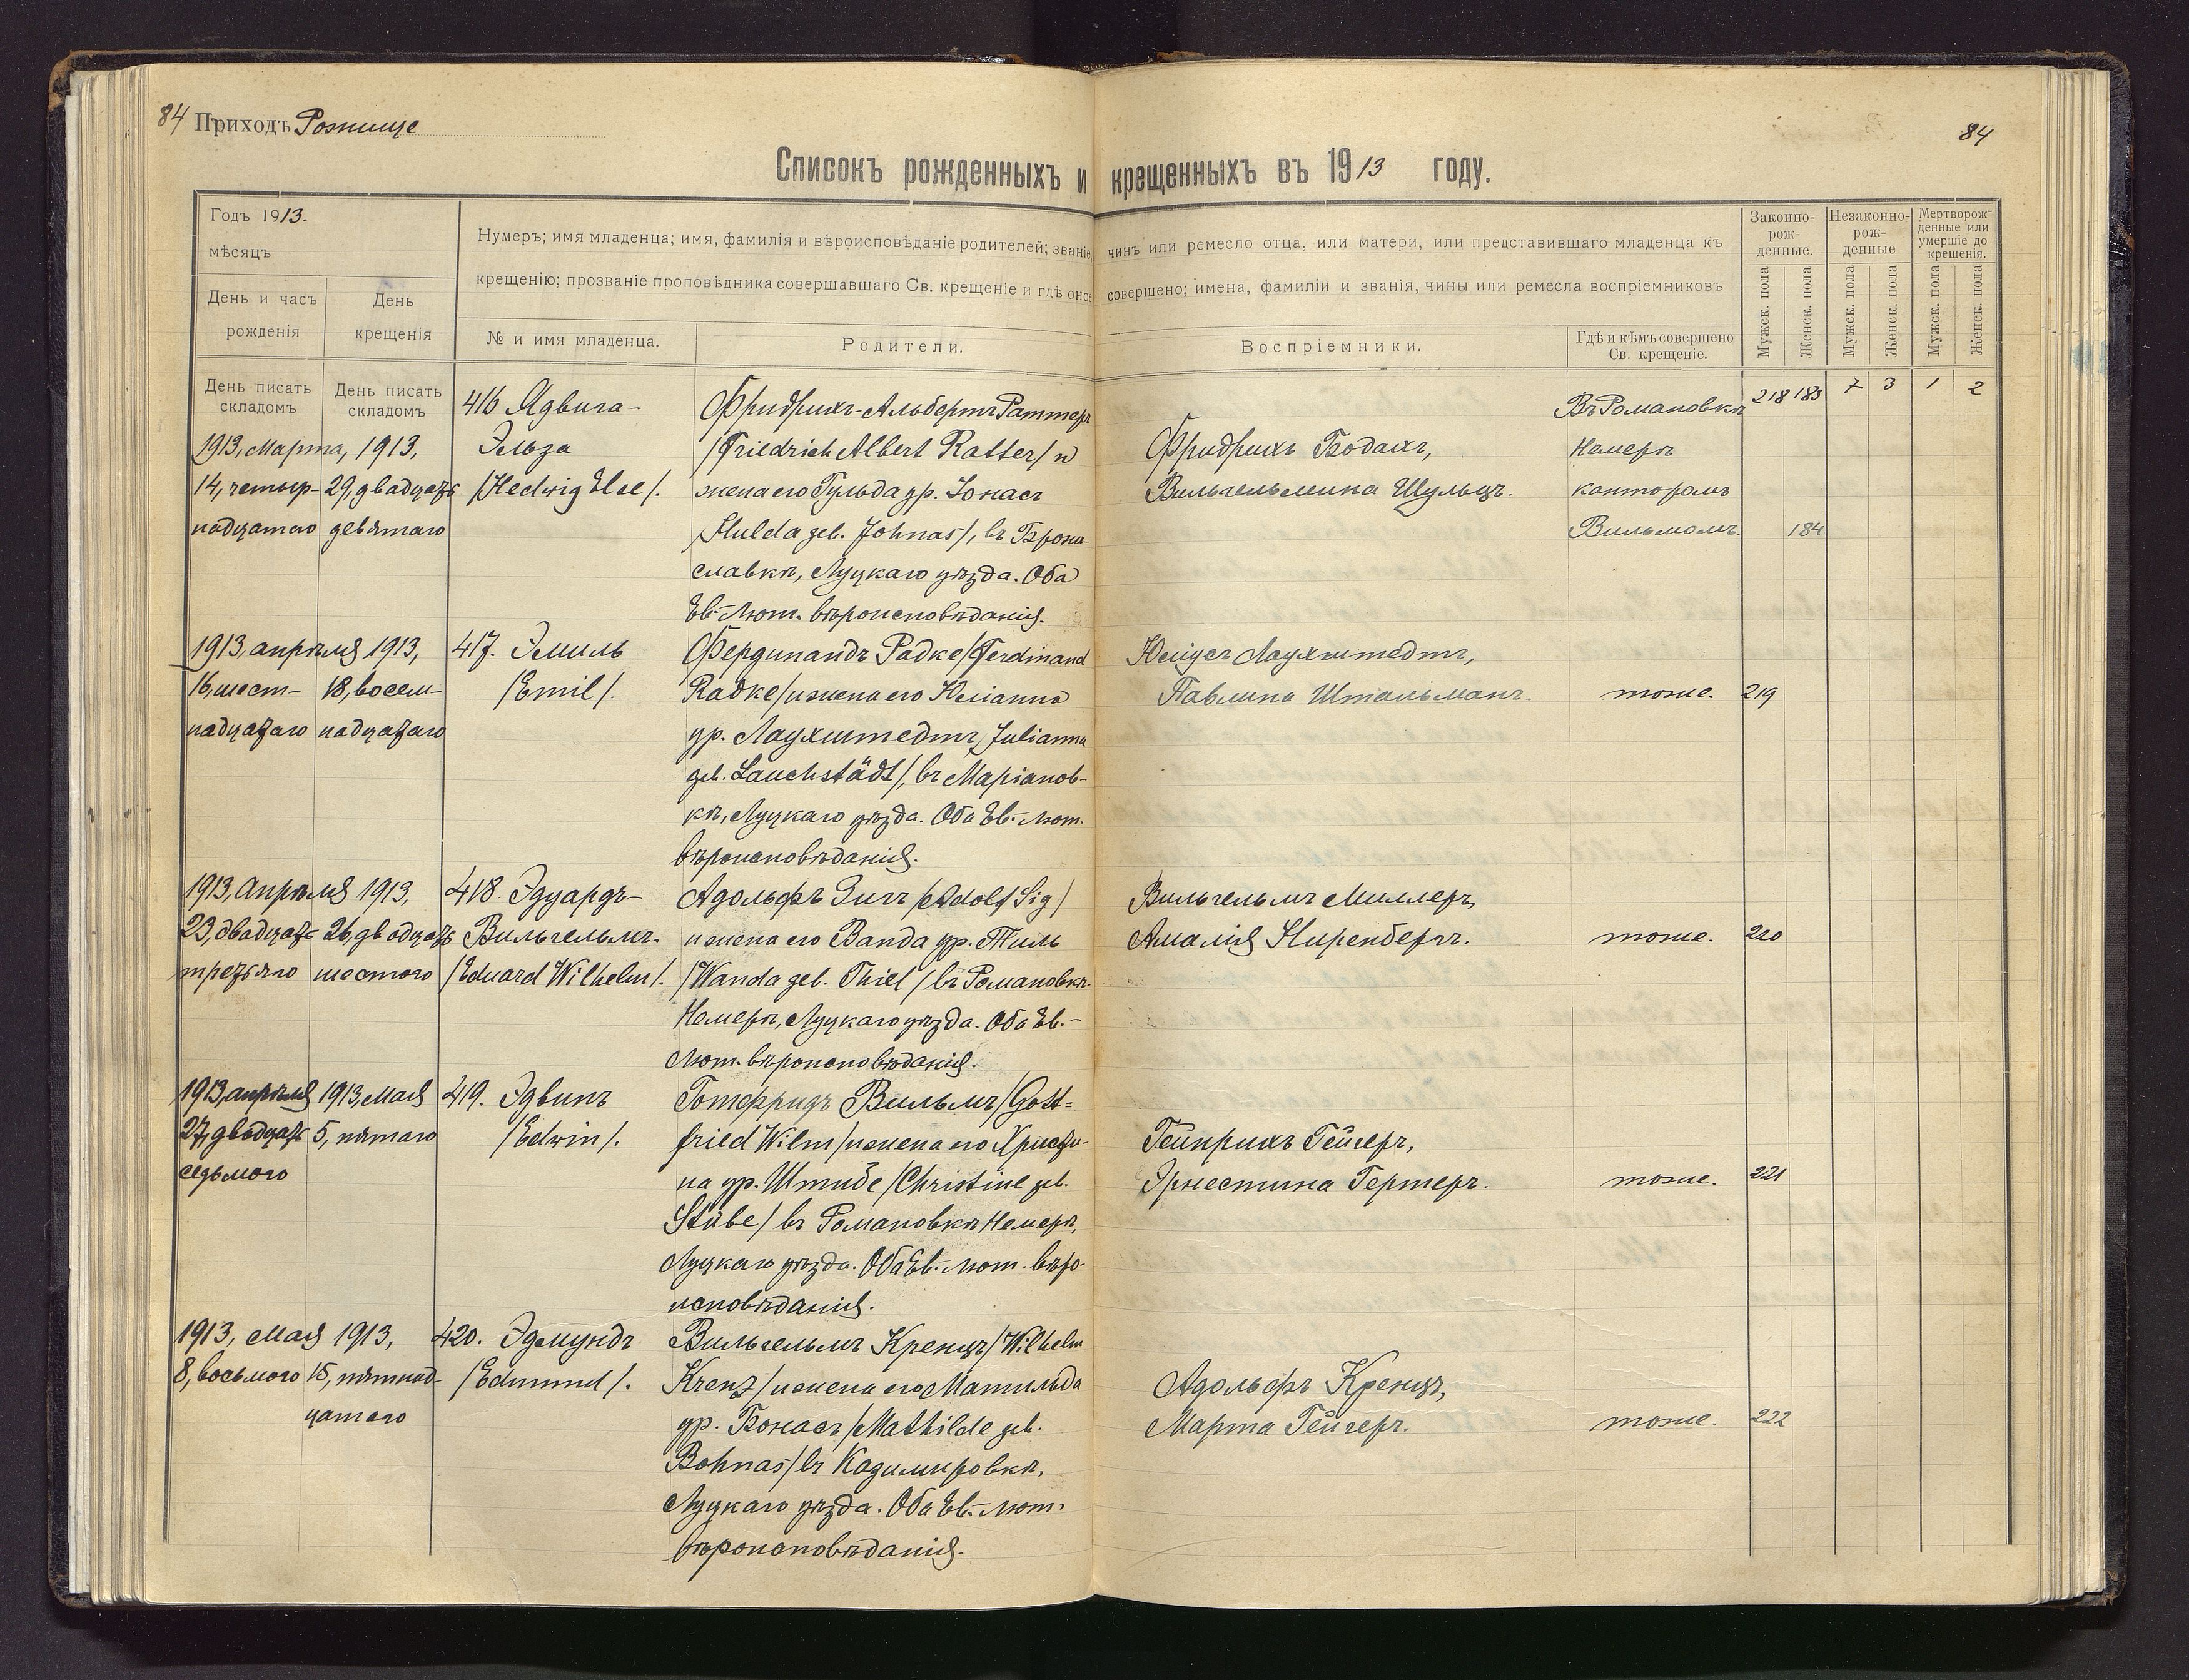 84 Приходъ Рожище
84
Списокъ рожденныхъ и крещенныхъ въ 1913 году.
Годъ 1913.
мѣсяцъ
День и часъ рожденія
День крещенія
Нумеръ; имя младенца; имя, фамилія и вѣроисповѣданіе родителей; званіе, чинъ или ремесло отца, или матери, или представившаго младенца къ
крещенію; прозваніе проповѣдника совершавшаго Св. крещеніе и гдѣ оное совершено; имена, фамиліи и званія, чины или ремесла воспріемниковъ
№ и имя младенца.
Родители.
Воспріемники.
Гдѣ и кѣмъ совершено Св. крещеніе.
Законно-рож-денные.
Незаконно-рож-денные
Мертворож-денные или умершіе до крещенія.
Мужск. пола
Женск. пола
Мужск. пола
Женск. пола
Мужск. пола
Женск. пола
День писать складомъ
День писать складомъ
218 183 7 3 1 2
1913, Марта, 1913,
14, четыр- 29, двадцать
надцатаго девятаго
416 Ядвига-
Эльза
/Hedwig Else/.
Фридрихъ-Альбертъ Раттеръ
/Friedrich Albert Ratter/ и
жена его Гульда ур. Іонасъ
/Hulda geb. Johnas/, въ Брони-
славкѣ, Луцкаго уѣзда. Оба
Ев.-Лют. вѣроисповѣданія.
Фридрихъ Бодахъ,
Вильгельмина Шульцъ.
Въ Романовкѣ
Немеръ
канторомъ
Вильмомъ.
184
1913, апрѣля 1913,
16, шест- 18, восем-
надцатаго надцатаго
417. Эмиль
/Emil/.
Фердинандъ Радке /Ferdinand
Radke/ и жена его Юліанна
ур. Лаухштедтъ /Julianna
geb. Lauchstädt/, въ Маріанов-
кѣ, Луцкаго уѣзда. Оба Ев.-Лют.
вѣроисповѣданія.
Юліусъ Лаухштедтъ,
Павлина Штальманъ.
тоже. 219
1913, Апрѣля 1913,
23, двадцать 26, двадцать
третьяго шестого
418. Эдуардъ-
Вильгельмъ.
/Eduard Wilhelm/.
Адольфъ Зигъ /Adolf Sig/
и жена его Ванда ур. Тиль
/Wanda geb. Thiel/ въ Романовкѣ-
Немеръ, Луцкаго уѣзда. Оба Ев.-
Лют. вѣроисповѣданія.
Вильгельмъ Миллеръ,
Амалія Ниренбергъ.
тоже. 220
1913, апрѣля 1913, Мая
27, двадцать 5, пятаго
седьмого
419. Эдвинъ
/Edwin/.
Готфридъ Вильмъ /Gott-
fried Wilm/ и жена его Христи-
на ур. Штибе /Christine geb.
Stübe/ въ Романовкѣ Немеръ,
Луцкаго уѣзда. Оба Ев.-лют. вѣро-
исповѣданія.
Гейнрихъ Гейгеръ,
Эрнестина Гертеръ.
тоже. 221
1913, Мая 1913,
8, восьмого 15, пятнад-
цатаго
420. Эдмундъ
/Edmund/.
Вильгельмъ Кренцъ /Wilhelm
Krenz/ и жена его Матильда
ур. Бонасъ /Mathilde geb.
Bohnas/ въ Казимировкѣ,
Луцкаго уѣзда. Оба Ев.-лют.
вѣроисповѣданія.
Адольфъ Кренцъ,
Марта Гейгеръ.
тоже. 222